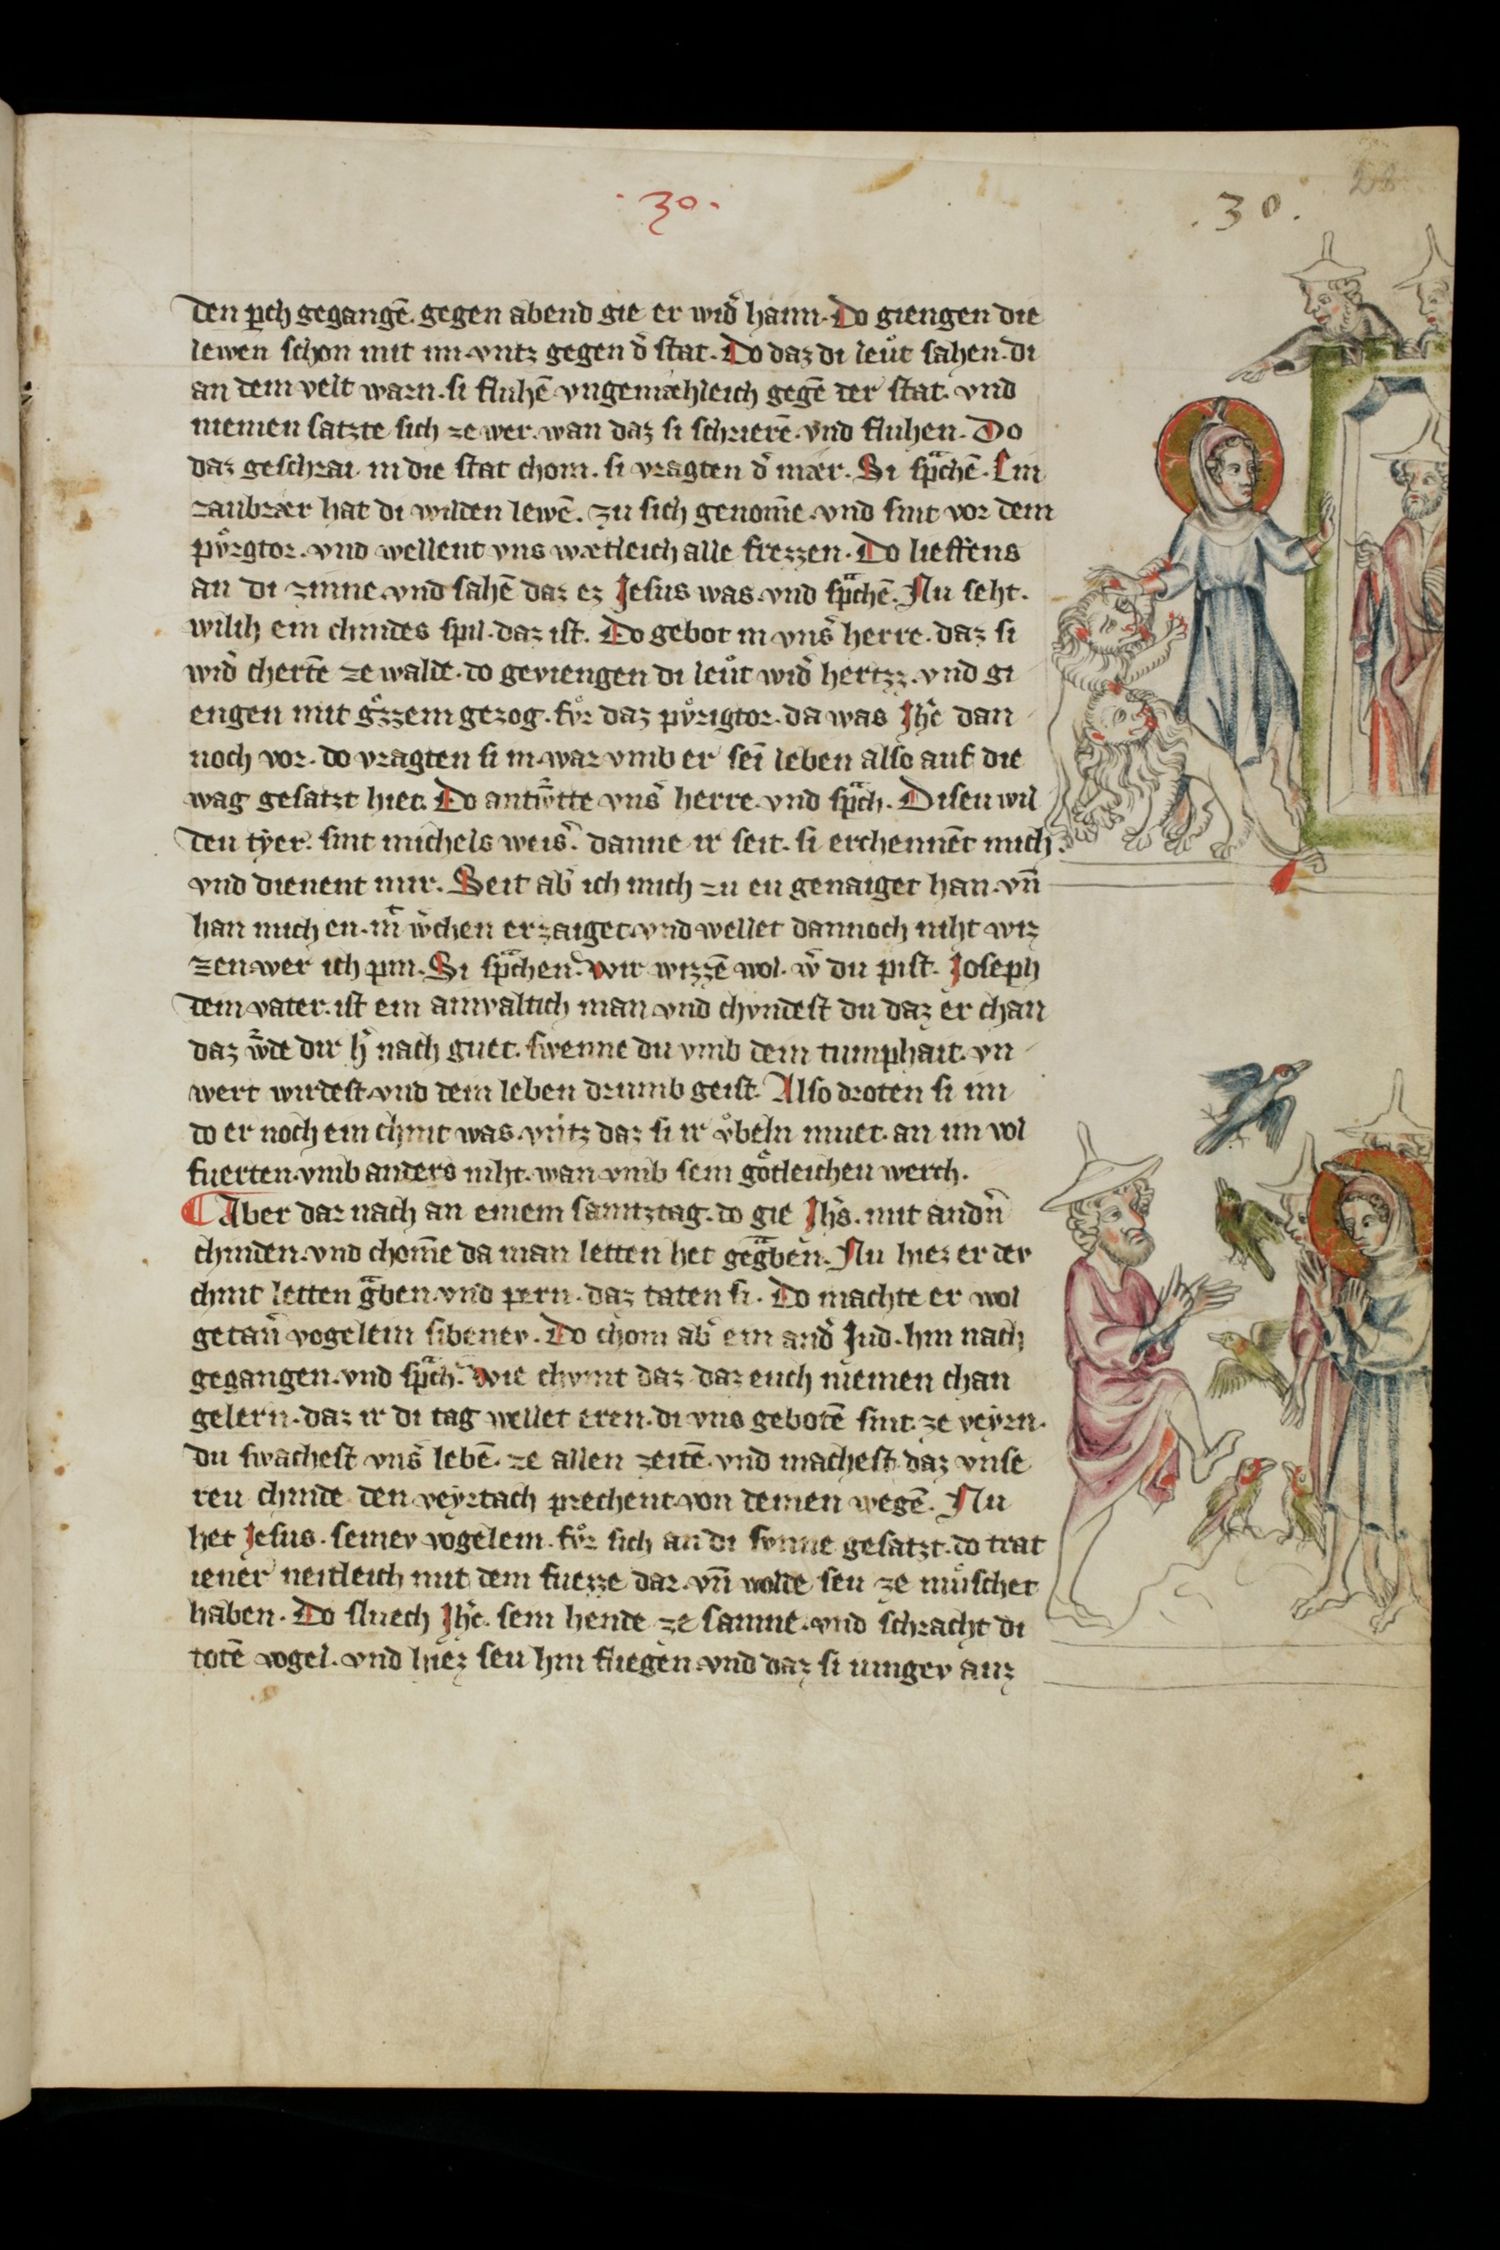 ·30·
·30·
28
den perch gegangē. gegen abend gie er wid͛ haim. Do giengen die
lewen schon mit im. vntz gegen d͛ stat. Do daz di leůt sahen. di
an dem velt warn. si fluhē vngemæhleich gegē der stat. vnd
niemen satzte sich ze wer. wan daz si schrierē. vnd fluhen. Do
daz geschrai in die stat chom. si vragten d͛ mær. Si spͣchē. Ein
zaubrær hat di wilden lewē. zu sich genom̄e. vnd sint vor dem
pu̍rgtor. vnd wellent vns wætleich alle frezzen. Do lieffens
an di zinne. vnd sahē daz ez Jesus was. vnd spͣchē. Nu seht.
wilih ein chindes spil. daz ist. Do gebot in vns͛ herre. daz si
wid͛ chertē ze walde. do geviengen di leůt wid͛ hertzz. vnd gi
engen mit gͦzzem gezog. fůr daz půrigtor. da was Jh̄c dan
noch vor. do vragten si in. war vmb er seī leben also auf die
wag gesatzt hiet. Do antw͛tte vns͛ herre. vnd spͣch. Diseu wil
den tyer. sint michels weis͛. danne ir seit. si erchennēt mich.
vnd dienent mir. Seit ab͛ ich mich zu eu genaiget han. vn̄
han mich en. mͭ w͛chen erzaiget. vnd wellet dannoch niht wiz
zen wer ich pin. Si spͣchen. Wir wizzē wol. w͛ du pist. Joseph
dein vater. ist ein anvaltich man. vnd chvndest du daz er chan
daz w͛de dir h͛ nach guet. swenne du vmb dein tumphait. vn
wert wirdest. vnd dein leben drumb geist. Also droten si im
do er noch ein chint was. vntz daz si ir vͤbeln muet. an im vol
fuerten. vmb anders niht. wan vmb sein gőtleicheu werch.
Aber dar nach an einem samtztag. do gie Jhs̄. mit andn͛
chinden. vnd chom̄e da man letten het gegͣben. Nu hiez er der
chint letten gͣben. vnd pern. daz taten si. Do machte er wol
getan͛ vogelein sibenev. Do chom ab͛ ein and͛ Jud. hin nach
gegangen. vnd spͣch. Wie chvmt daz. daz euch niemen chan
gelern. daz ir di tag wellet eren. di vns gebotē sint. ze veyrn.
du swachest vns͛ lebē. ze allen zeitē. vnd machest. daz vnse
reu chinde den veyrtach prechent. von deinen wegē. Nu
het Jesus. seinev vogelein. fůr sich an di svnne gesatzt. do trat
iener neitleich mit dem fuezze dar. vn̄ wolde seu ze můschet
haben. Do sluech Jh̄c. sein hende ze samne. vnd schracht di
totē vogel. vnd hiez seu hin fliegen. vnd daz si iungev auz